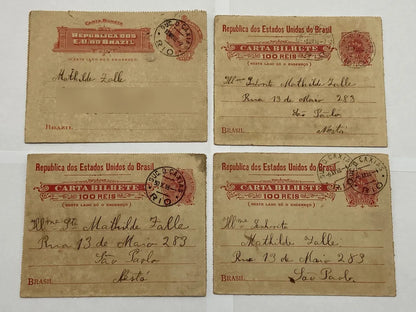 CARTA BILHETE
REPUBLICA DOS
E.U. DO BRAZIL
Mathilde Zalle
BRAZIL
Republica dos Estados Unidos do Brasil
CARTA BILHETE
100 REIS
(NESTE LADO SÓ O ENDEREÇO)
Mathilde Zalle
Rua 13 de Maio 283
São Paulo
BRASIL
Republica dos Estados Unidos do Brasil
CARTA BILHETE
100 REIS
(NESTE LADO SÓ O ENDEREÇO)
Mathilde Zalle
Rua 13 de Maio 283
São Paulo
BRASIL
RIO
Republica dos Estados Unidos do Brasil
CARTA BILHETE
100 REIS
(NESTE LADO SÓ O ENDEREÇO)
Mathilde Zalle
Rua 13 de Maio 283
BRASIL São Paulo
RIO